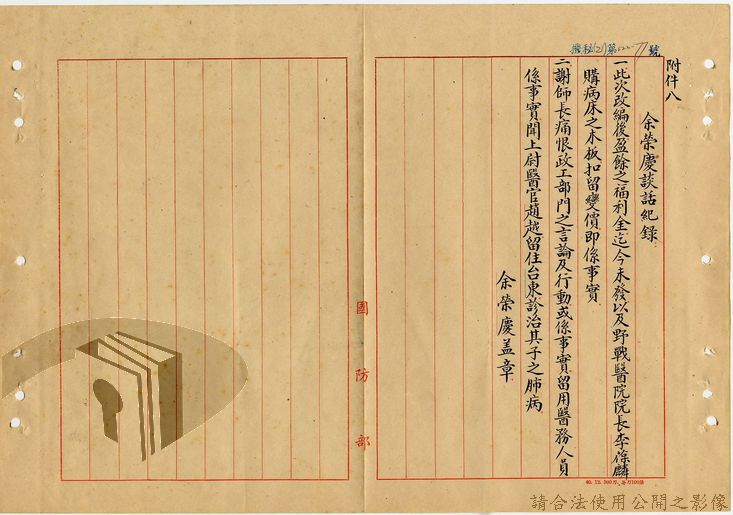 附件八
余榮慶談話紀錄
一此次改編後盈餘之福利金迄今未發以及野戰醫院院長李徐麟
購病床之木板扣留變價即係事實
二謝師長痛恨政工部門之言論及行動或係事實留用醫務人員
係事實聞上尉醫官趙越留住台東診治其子之肺病
余榮慶蓋章
國防部
請合法使用公開之影像